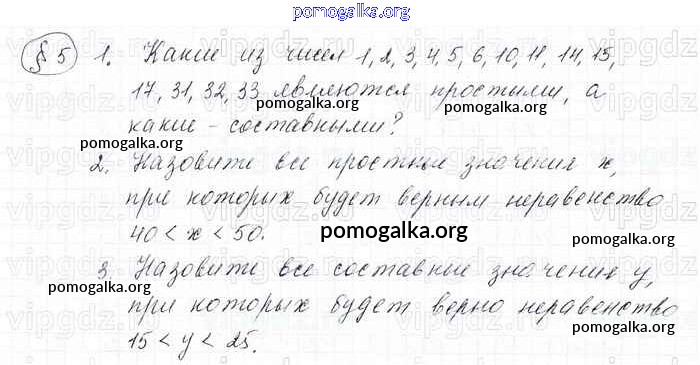 pomogalka.org
§ 5 1. Какие из чисел 1, 2, 3, 4, 5, 6, 10, 11, 14, 15,
17, 31, 32, 33 являются простыми, а
pomogalka.org pomogalka.org
какие - составными?
pomogalka.org
2. Назовите все простые значения x,
при которых будет верным неравенство
40 < x < 50.
pomogalka.org pomogalka.org
3. Назовите все составные значения y,
pomogalka.org
при которых будет верно неравенство
pomogalka.org
15 < y < 25.